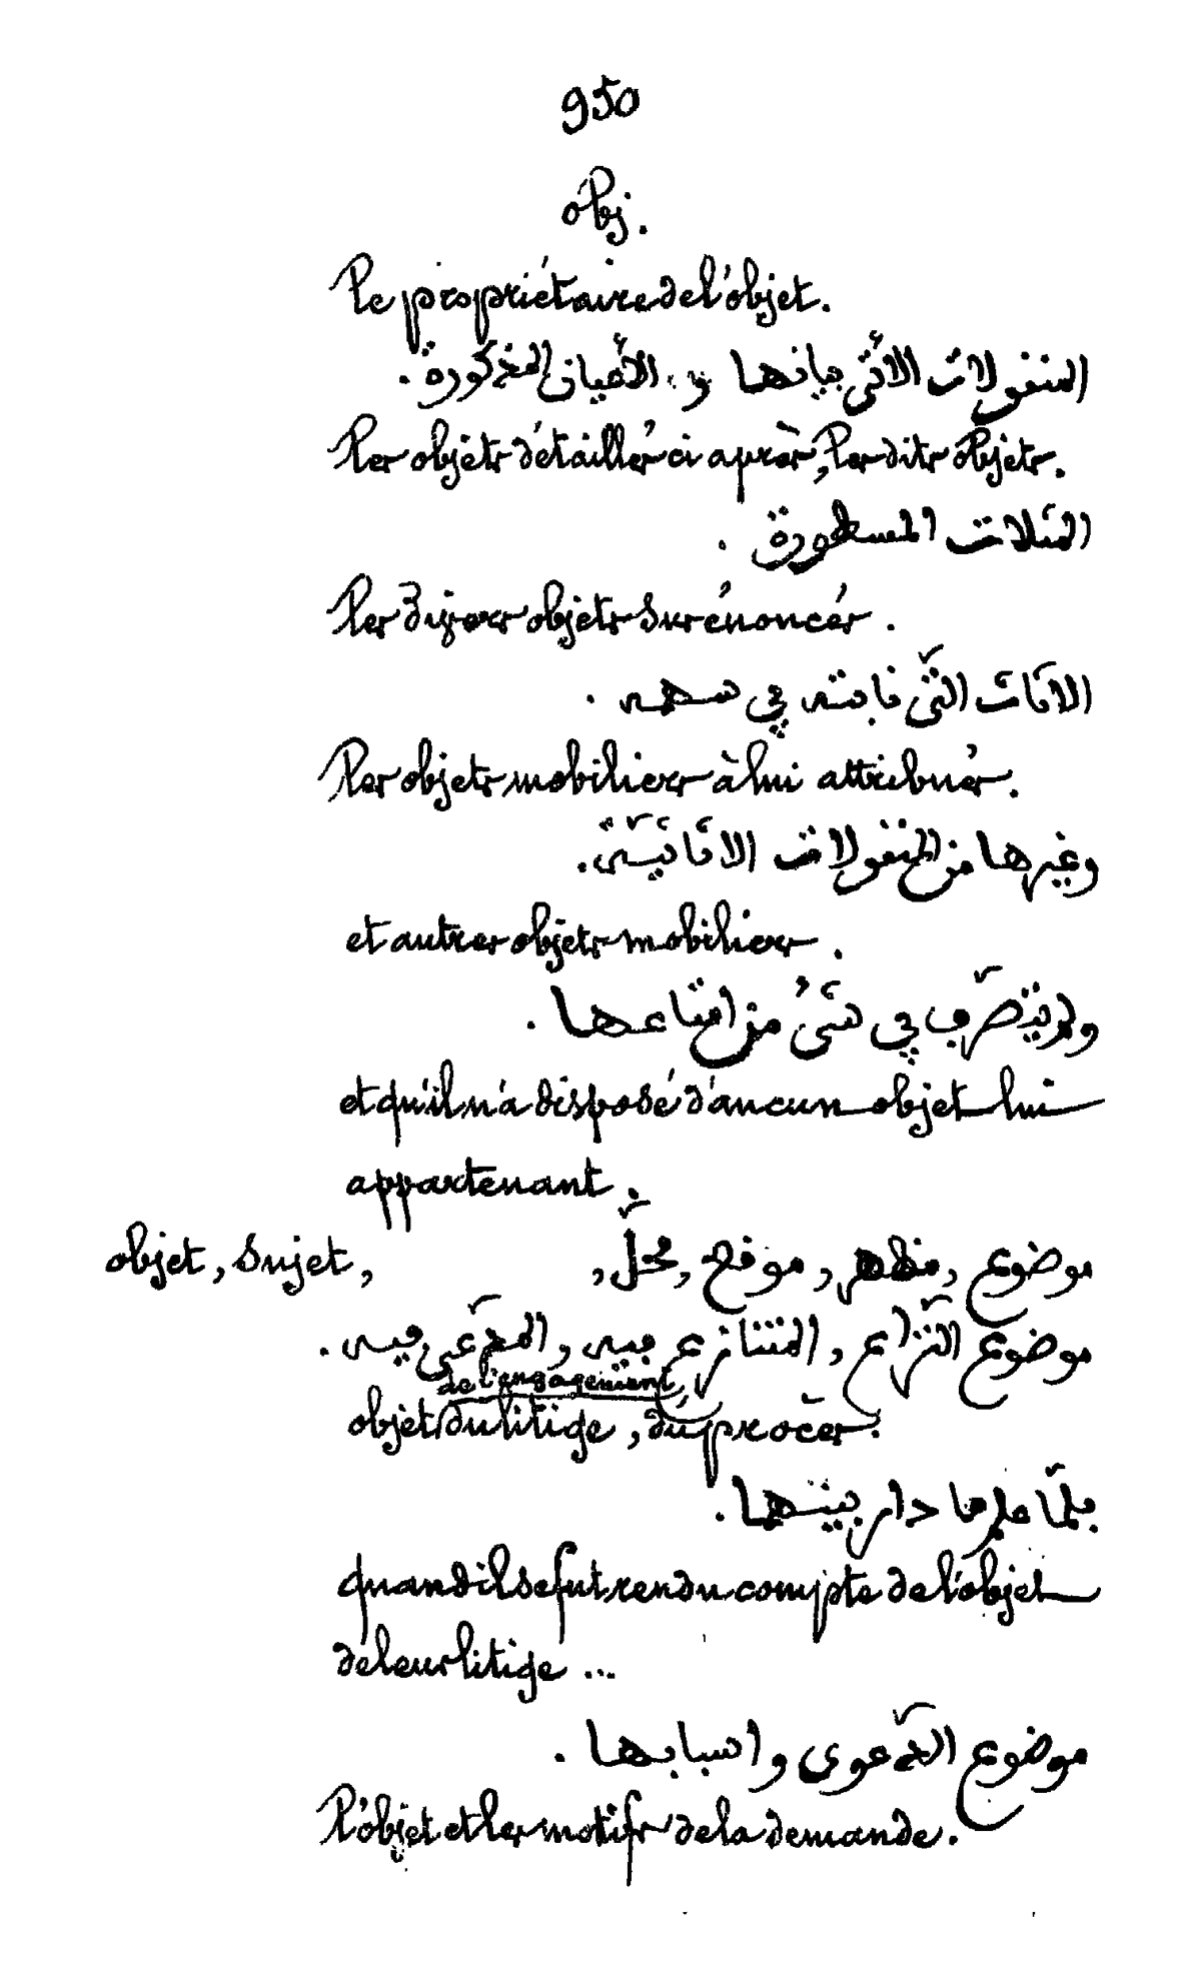 950
obj.
Le propriétaire de l'objet.
المنقولات الاتي بيانها و الأعيان المذكورة.
Les objets détaillés ci après, les dits objets.
المثلات المسطورة.
Les divers objets susénoncés.
الاثاث التي نابته في سهمه.
Les objets mobiliers à lui attribués.
وغيرها من المنقولات الاثاثيّة.
et autres objets mobiliers.
ولم يتصرّف في شيءٍ من امتاعها.
et qu'il n'a disposé d'aucun objet lui
appartenant.
objet, sujet, موضوع, مظهر, موقع, محلّ,
موضوع النّزاع, المتنازع فيه, المدّعى فيه.
de l'engagement,
objet du litige, du procès.
فلمّا علم ما دار بينهما.
quand il se fut rendu compte de l'objet
de leur litige ...
موضوع الدّعوى واسبابها.
L'objet et les motifs de la demande.